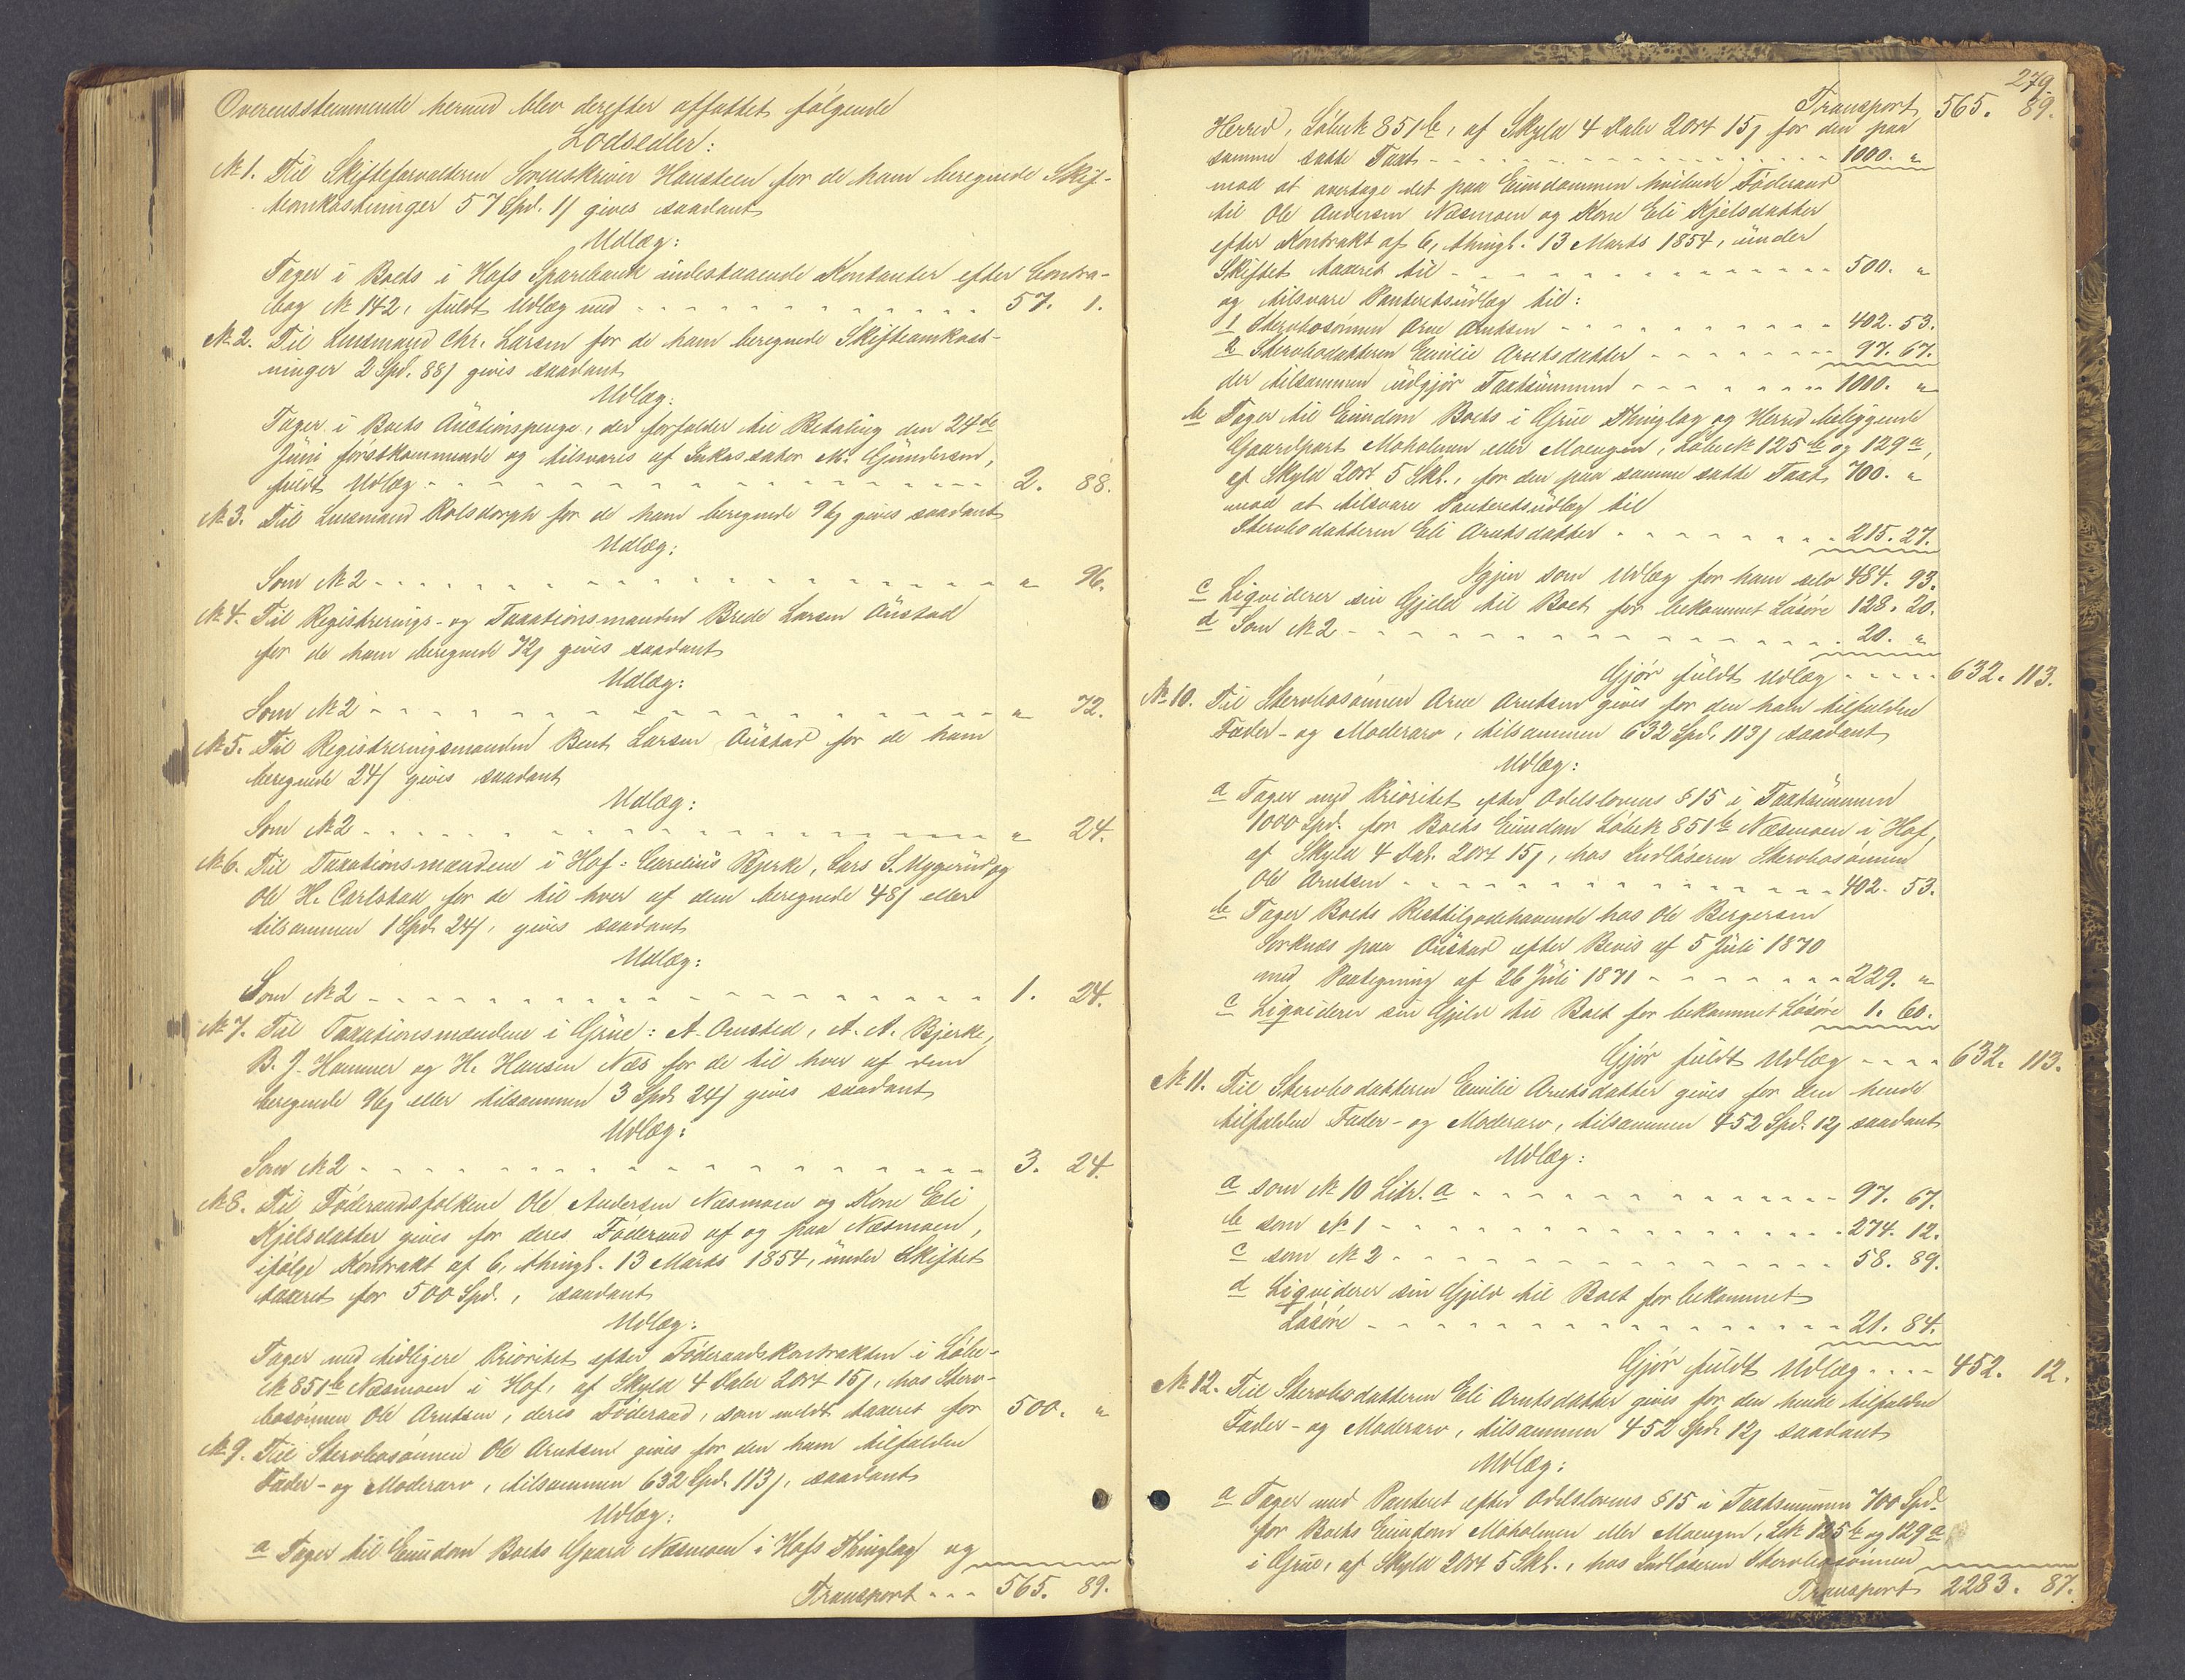 Overensstemmende hermed blev derefter affattet følgende
Lodsedler:
No 1. Til Skifteforvalteren Sorenskriver Hansteen for de ham beregnede Skif-
teomkostninger 57 Spd. 1 ʃ gives saadant
Udlæg:
Tager i Boets i Hofs Sparebank indestaaende Kontanter efter Contra-
bog No 142, fuldt Udlæg med - - - 57. 1.
No 2. Til Lensmand Chr. Larsen for de ham beregnede Skifteomkost-
ninger 2 Spd. 88 ʃ gives saadant
Udlæg:
Tager i Boets Auctionspenge, der forfalder til Betaling den 24de
Juni førstkommende og tilsvares af Inkassator M. Gundersen,
fuldt Udlæg - - - 2. 88.
No 3. Til Lensmand Rolsdorph for de ham beregnede 96 ʃ gives saadant
Udlæg:
Som No 2 - - - " 96.
No 4. Til Registrerings- og Taxationsmanden Brede Larsen Austad
for de ham beregnede 72 ʃ gives saadant
Udlæg:
Som No 2 - - - " 72.
No 5. Til Registreringsmanden Bent Larsen Austad for de ham
beregnede 24 ʃ gives saadant
Udlæg:
Som No 2 - - - " 24.
No 6. Til Taxationsmændene i Hof: Carelius Bjerke, Lars S. Myggerud og
Ole H. Carlstad for de til hver af dem beregnede 48 ʃ eller
tilsammen 1 Spd. 24 ʃ, gives saadant
Udlæg:
Som No 2 - - - 1. 24.
No 7. Til Taxationsmændene i Grue: A. Onsted, A. A. Bjerke,
B. J. Hammer og H. Hansen Næs for de til hver af dem
beregnede 96 ʃ eller tilsammen 3 Spd. 24 ʃ gives saadant
Udlæg:
Som No 2 - - - 3. 24.
No 8. Til Føderaadsfolkene Ole Andersen Næsmoen og Kone Eli
Kjelsdatter gives for deres Føderaad af og paa Næsmoen,
ifølge Kontrakt af 6, thingl. 13 Marts 1854, under Skiftet
taxeret for 500 Spd., saadant
Udlæg:
Tager med tidligere Prioritet efter Føderaadskontrakten i Løbe-
No 851b Næsmoen i Hof, af Skyld 4 Daler 2 ort 15 ʃ, hos Sterv-
bosønnen Ole Arntsen, deres Føderaad, som meldt taxeret for 500. "
No 9. Til Stervbosønnen Ole Arntsen gives for den ham tilfaldne
Fader- og Moderarv, tilsammen 632 Spd. 113 ʃ, saadant
Udlæg:
a Tager til Eiendom Boets Gaard Næsmoen i Hofs Thinglag og
Transport - - - 565. 89.
279.
Transport 565. 89.
Herred, Løbe No 851b, af Skyld 4 Daler 2 ort 15 ʃ for den paa
samme satte Taxt - - - 1000. "
mod at overtage det paa Eiendommen hvilende Føderaad
til Ole Andersen Næsmoen og Kone Eli Kjelsdatter
efter Kontrakt af 6, thingl. 13 Marts 1854, under
Skiftet taxeret til - - - 500. "
og tilsvare Panteretsudlæg til:
1 Stervbosønnen Arne Arntsen - - - 402. 53.
2 Stervbodatteren Emilie Arntsdatter - - - 97. 67.
der tilsammen udgjør Taxtsummen - - - 1000. "
b Tager til Eiendom Boets i Grue Thinglag og Herred beliggende
Gaardpart Moholmen eller Moengen, Løbe No 125b og 129a,
af Skyld 2 ort 5 Skl., for den paa samme satte Taxt 700. "
mod at tilsvare Panteretsudlæg til
Stervbodatteren Eli Arntsdatter - - - 215. 27.
Igjen som Udlæg for ham selv 484. 93.
c Liqviderer sin Gjeld til Boet for bekommet Løsøre 128. 20.
d Som No 2 - - - 20. "
Gjør fuldt Udlæg - - - 632. 113.
No 10. Til Stervbosønnen Arne Arntsen gives for den ham tilfaldne
Fader- og Moderarv, tilsammen 632 Spd. 113 ʃ saadant
Udlæg:
a Tager med Prioritet efter Odelslovens § 15 i Taxtsummen
1000 Spd. for Boets Eiendom Løbe No 851b Næsmoen i Hof,
af Skyld 4 Dal. 2 ort 15 ʃ, hos Indløseren Stervbosønnen
Ole Arntsen - - - 402. 53.
b Tager Boets Resttilgodehavende hos Ole Bergersen
Sorknæs paa Austad efter Bevis af 5 Juli 1870
med Paategning af 26 Juli 1871 - - - 229. "
c Liqviderer sin Gjeld til Boet for bekommet Løsøre 1. 60.
Gjør fuldt Udlæg - - - 632. 113.
No 11. Til Stervbodatteren Emilie Arntsdatter gives for den hende
tilfaldne Fader- og Moderarv, tilsammen 452 Spd. 12 ʃ saadant
Udlæg:
a som No 10 Litr. a - - - 97. 67.
b som No 1 - - - 274. 12.
c som No 2 - - - 58. 89.
d Liqviderer sin Gjeld til Boet for bekommet
Løsøre - - - 21. 84.
Gjør fuldt Udlæg - - - 452. 12.
No 12. Til Stervbodatteren Eli Arntsdatter gives for den hende tilfaldne
Fader- og Moderarv, tilsammen 452 Spd. 12 ʃ saadant
Udlæg:
a Tager med Panteret efter Odelslovens § 15 i Taxtsummen 700 Spd.
for Boets Eiendom Moholmen eller Moengen, L No 125b og 129a
i Grue, af Skyld 2 ort 5 Skl., hos Indløseren Stervbosønnen
Transport 2283. 87.